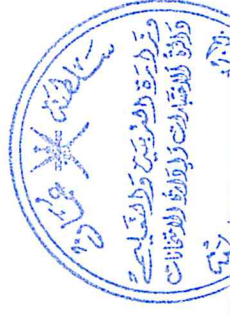 سلطنة عمان
وزارة التربية والتعليم
دائرة الاختبارات وإدارة الامتحانات